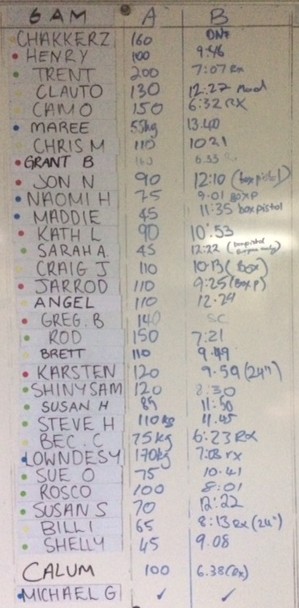 6 AM A B
CHAKKERZ 160 DNF
HENRY 100 9:46
TRENT 200 7:07 Rx
CLAUTO 130 12:27 Mod
CAMO 150 6:32 RX
MAREE 55kg 13.40
CHRIS M 110 10:21
GRANT B 6.53
JON N 90 12:10 (box pistol)
NAOMI H 75 9:01 BOX P
MADDIE 45 11:35 box pistol
KATH L 90 10:53
SARAH A 45 12:22
CRAIG J 110 10:13 (Box)
JARROD 110 9:25 (Box P)
ANGEL 110 12:29
GREG. B 140 SC
ROD 150 7:21
BRETT 110 9:49
KARSTEN 120 9:59 (24")
SHINY SAM 120 8:30
SUSAN H 85 11:50
STEVE H 110 kg 11.45
BEC. C 75kg 6:23 RX
LOWNDESY 170kg 7:08 rx
SUE O 75 10:41
ROSCO 100 8:01
SUSAN S 70 12:22
BILL I 65 8:13 Rx (24")
SHELLY 45 9.08
CALUM 100 6.38 (Rx)
MICHAEL G ✓ ✓